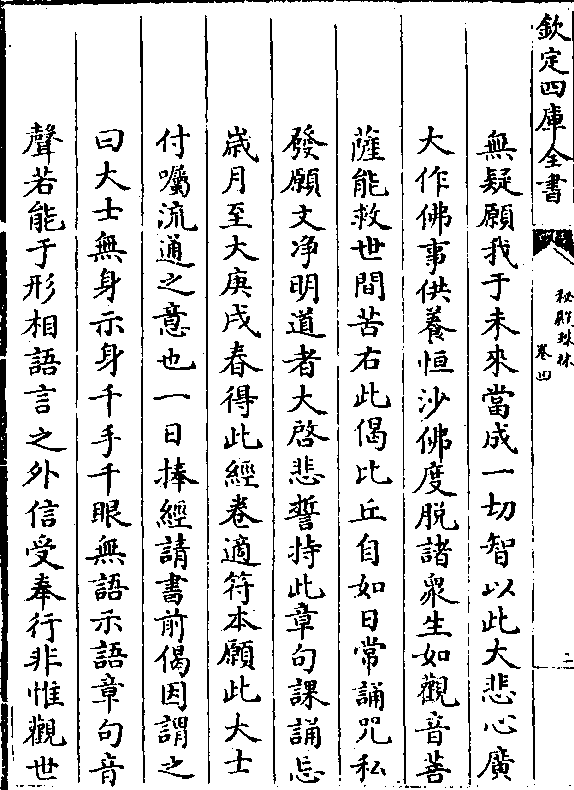 欽定四庫全書
秘殿珠林
卷四
二
無疑願我于未來當成一切智以此大悲心廣
大作佛事供養恒沙佛度脱諸衆生如觀音菩
薩能救世間苦右此偈比丘自如日常誦咒私
發願文净明道者大啓悲誓持此章句課誦忘
歳月至大庚戌春得此經卷適符本願此大士
付囑流通之意也一日捧經請書前偈因謂之
曰大士無身示身千手千眼無語示語章句音
聲若能于形相語言之外信受奉行非惟觀世